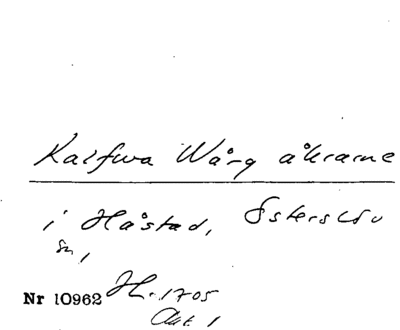 Kalfwa Wång åkrarne
i Håstad, Österslöv
sn,
Nr 10962 H. 1705
Akt 1